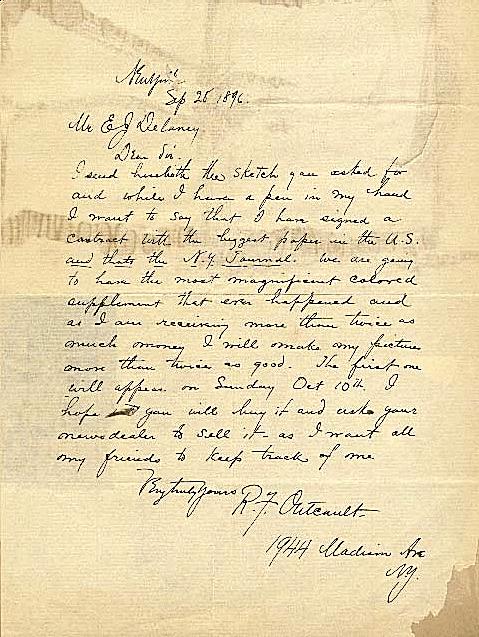 Sep 25 1896.
Mr E J Delaney
Dear Sir.
I send herewith the sketch you asked for
and while I have a pen in my hand
I want to say that I have signed a
contract with the biggest paper in the U.S.
and thats the N.Y. Journal. We are going
to have the most magnificent colored
supplement that ever happened and
as I am receiving more than twice as
much money I will make my pictures
more than twice as good. The first one
will appear on Sunday Oct 10th. I
hope you will buy it and ask your
newsdealer to sell it - as I want all
my friends to keep track of me
Very truly yours R.F. Outcault-
1944 Madison Ave
N.Y.